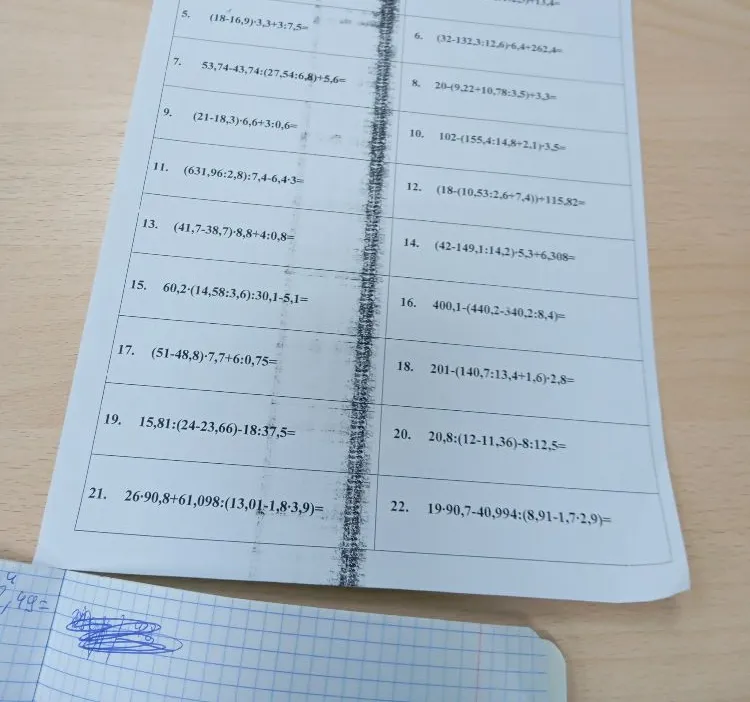 5. (18-16,9)·3,3+3:7,5=
6. (32-132,3:12,6)·6,4+262,4=
7. 53,74-43,74:(27,54:6,8)+5,6=
8. 20-(9,22+10,78:3,5)+3,3=
9. (21-18,3)·6,6+3:0,6=
10. 102-(155,4:14,8+2,1)·3,5=
11. (631,96:2,8):7,4-6,4·3=
12. (18-(10,53:2,6+7,4))+115,82=
13. (41,7-38,7)·8,8+4:0,8=
14. (42-149,1:14,2)·5,3+6,308=
15. 60,2·(14,58:3,6):30,1-5,1=
16. 400,1-(440,2-340,2:8,4)=
17. (51-48,8)·7,7+6:0,75=
18. 201-(140,7:13,4+1,6)·2,8=
19. 15,81:(24-23,66)-18:37,5=
20. 20,8:(12-11,36)-8:12,5=
21. 26·90,8+61,098:(13,01-1,8·3,9)=
22. 19·90,7-40,994:(8,91-1,7·2,9)=